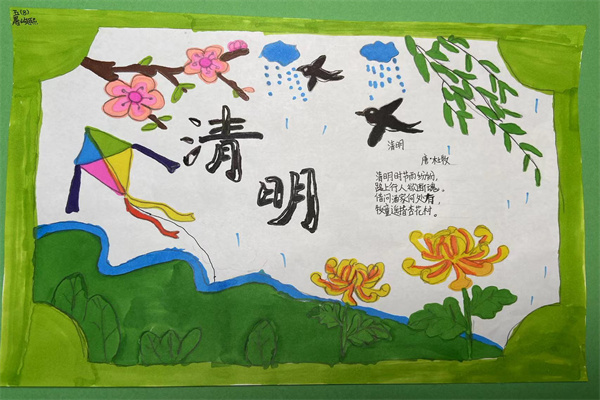 五(8)
清明
清明
唐·杜牧
清明时节雨纷纷,
路上行人欲断魂。
借问酒家何处有,
牧童遥指杏花村。